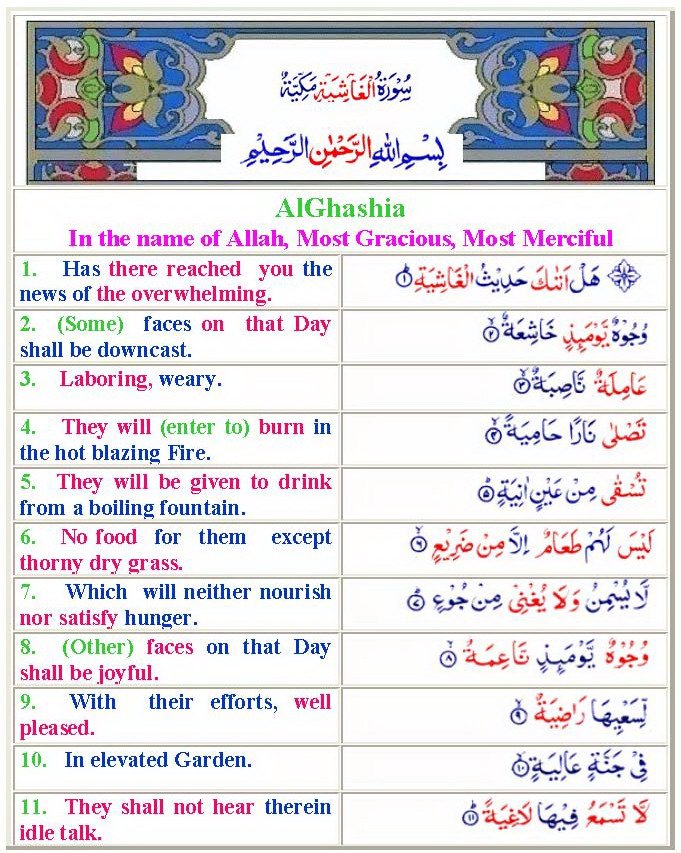 سُورَةُ الْغَاشِيَةِ مَكِّيَّةٌ
بِسْمِ اللهِ الرَّحْمٰنِ الرَّحِيْمِ
AlGhashia
In the name of Allah, Most Gracious, Most Merciful
1. Has there reached you the
news of the overwhelming.
هَلْ اَتٰىكَ حَدِيْثُ الْغَاشِيَةِ ۝١
2. (Some) faces on that Day
shall be downcast.
وُجُوْهٌ يَّوْمَئِذٍ خَاشِعَةٌ ۝٢
3. Laboring, weary.
عَامِلَةٌ نَّاصِبَةٌ ۝٣
4. They will (enter to) burn in
the hot blazing Fire.
تَصْلٰى نَارًا حَامِيَةً ۝٤
5. They will be given to drink
from a boiling fountain.
تُسْقٰى مِنْ عَيْنٍ اٰنِيَةٍ ۝٥
6. No food for them except
thorny dry grass.
لَيْسَ لَهُمْ طَعَامٌ اِلَّا مِنْ ضَرِيْعٍ ۝٦
7. Which will neither nourish
nor satisfy hunger.
لَّا يُسْمِنُ وَلَا يُغْنِيْ مِنْ جُوْعٍ ۝٧
8. (Other) faces on that Day
shall be joyful.
وُجُوْهٌ يَّوْمَئِذٍ نَّاعِمَةٌ ۝٨
9. With their efforts, well
pleased.
لِّسَعْيِهَا رَاضِيَةٌ ۝٩
10. In elevated Garden.
فِيْ جَنَّةٍ عَالِيَةٍ ۝١٠
11. They shall not hear therein
idle talk.
لَّا تَسْمَعُ فِيْهَا لَاغِيَةً ۝١١